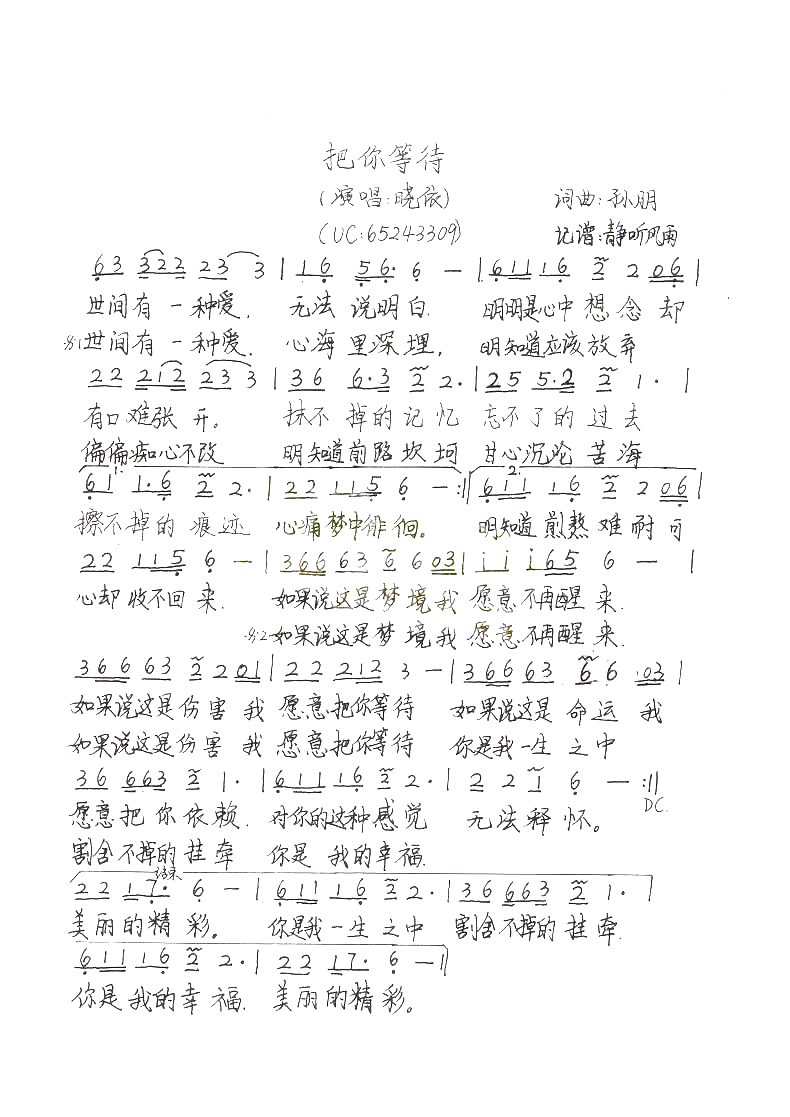 把你等待
(演唱:晓依) 词曲:孙朋
(UC:65243309) 记谱:静听风雨
63 322 23 3 | 16 56· 6 — | 6111 16 2 2 06 |
世间有一种爱. 无法说明白. 明明是心中想念却
世间有一种爱. 心海里深埋, 明知道应该放弃
22 212 23 3 | 36 6·3 2 2· | 25 5·2 2 1· |
有口难张开。 抹不掉的记忆 忘不了的过去
偏偏痴心不改 明知道前路坎坷 甘心沉沦苦海
1.
2.
61 1·6 2 2· | 22 115 6 — :|| 611 16 2 2 06 |
擦不掉的痕迹 心痛梦中徘徊。 明知道煎熬难耐可
22 115 6 — | 366 63 6 6 03 | i i i65 6 — |
心却收不回来. 如果说这是梦境我愿意不再醒来.
如果说这是梦境我愿意不再醒来.
366 63 2 2 01 | 22 212 3 — | 366 63 6 6 03 |
如果说这是伤害我愿意把你等待 如果说这是命运我
如果说这是伤害我愿意把你等待 你是我一生之中
36 663 2 1· | 611 16 2 2· | 2 2 1 6 — :||
DC.
愿意把你依赖. 对你的这种感觉 无法释怀。
割舍不掉的挂牵 你是我的幸福.
结束
22 17· 6 — | 611 16 2 2· | 36 663 2 1· |
美丽的精彩。 你是我一生之中 割舍不掉的挂牵.
611 16 2 2· | 22 17· 6 — ||
你是我的幸福. 美丽的精彩。